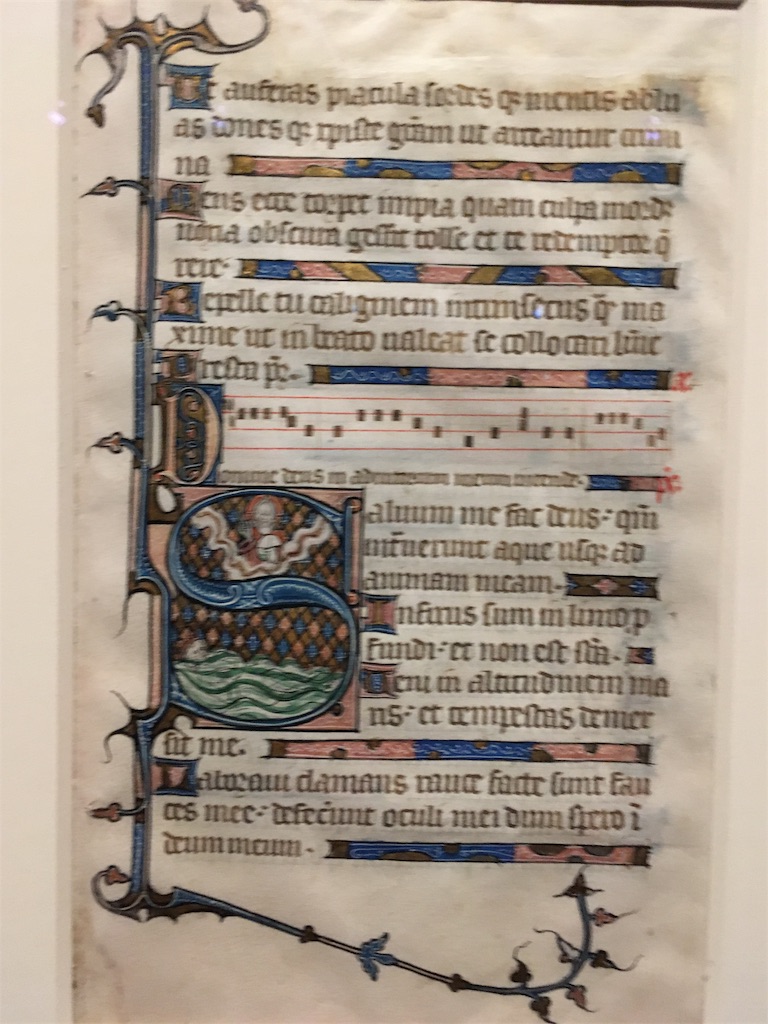 Ut auferas piacula sordes q; mentis ablu
as dones q; xpiste gr̄am ut arceantur crimi
na
Mens ecce torpet impia quam culpa mordet
noxia obscura gestit tolle et te redemptor q̄
rere·
Repelle tu caliginem intrinsecus q̄ ma
xime ut in beato valeat se collocari lumīe
Presta pr̄·
Domine deus in adiutorium meum intende·
Saluum me fac deus· qm̄
intrauerunt aque usq; ad
animam meam·
Infixus sum in limo p
fundi· et non est sb̄a·
Ueni in altitudinem ma
ris· et tempestas demer
sit me·
Laboraui clamans rauce facte sunt fau
ces mee· defecerunt oculi mei dum spero ī
deum meum·